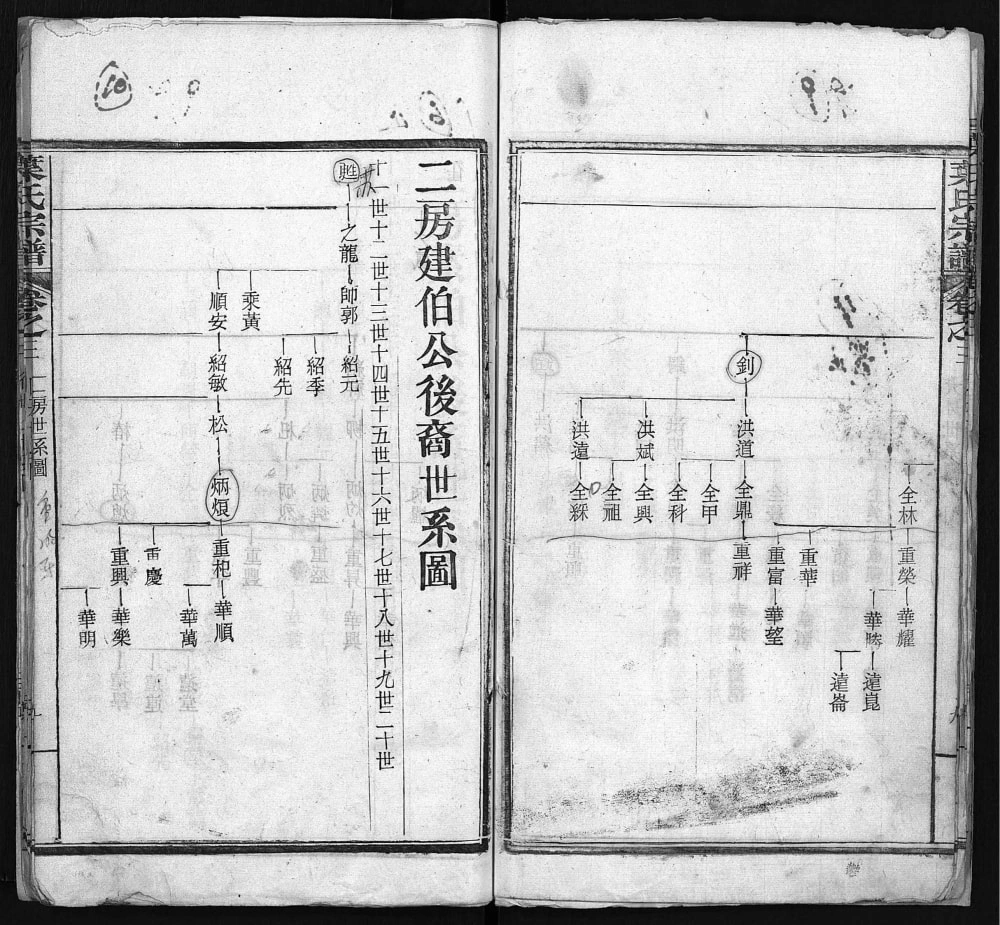 葉氏宗譜
卷之三
全林
重榮
華耀
華
遠崑
遠崙
重華
重富
華堃
釗
洪道
全鼎
重祥
全甲
全科
洪斌
全興
全祖
洪遠
全綵
二房建伯公後裔世系圖
十一世十二世十三世十四世十五世十六世十七世十八世十九世二十世
甦
之龍
帥郭
紹元
紹季
紹先
乘黃
順安
紹敏
松
炳煩
重杞
華順
華萬
重慶
重興
華樂
華明
葉氏宗譜
卷之三
二房世系圖
九